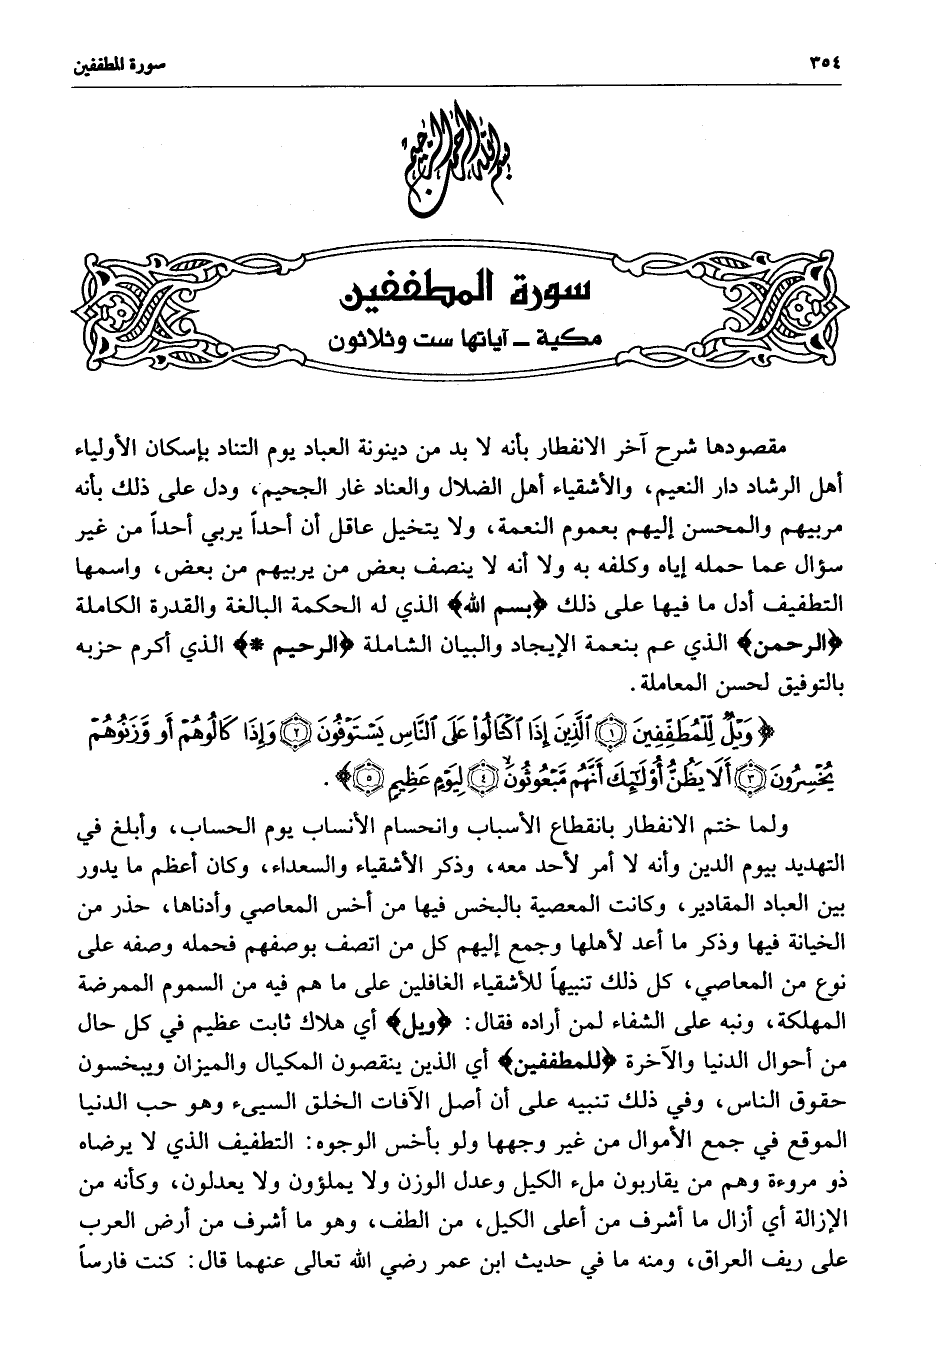 ٣٥٤
سورة المطففين
بسم الله الرحمن الرحيم
سورة المطففين
مكية ـ آياتها ست وثلاثون
مقصودها شرح آخر الانفطار بأنه لا بد من دينونة العباد يوم التناد بإسكان الأولياء
أهل الرشاد دار النعيم، والأشقياء أهل الضلال والعناد غار الجحيم، ودل على ذلك بأنه
مربيهم والمحسن إليهم بعموم النعمة، ولا يتخيل عاقل أن أحداً يربي أحداً من غير
سؤال عما حمله إياه وكلفه به ولا أنه لا ينصف بعض من يربيهم من بعض، واسمها
التطفيف أدل ما فيها على ذلك ﴿بسم الله﴾ الذي له الحكمة البالغة والقدرة الكاملة
﴿الرحمن﴾ الذي عم بنعمة الإيجاد والبيان الشاملة ﴿الرحيم *﴾ الذي أكرم حزبه
بالتوفيق لحسن المعاملة.
﴿وَيْلٌ لِّلْمُطَفِّفِينَ ۝١ ٱلَّذِينَ إِذَا ٱكْتَالُوا۟ عَلَى ٱلنَّاسِ يَسْتَوْفُونَ ۝٢ وَإِذَا كَالُوهُمْ أَو وَّزَنُوهُمْ
يُخْسِرُونَ ۝٣ أَلَا يَظُنُّ أُو۟لَٰٓئِكَ أَنَّهُم مَّبْعُوثُونَۙ ۝٤ لِيَوْمٍ عَظِيمٍ ۝٥﴾.
ولما ختم الانفطار بانقطاع الأسباب وانحسام الأنساب يوم الحساب، وأبلغ في
التهديد بيوم الدين وأنه لا أمر لأحد معه، وذكر الأشقياء والسعداء، وكان أعظم ما يدور
بين العباد المقادير، وكانت المعصية بالبخس فيها من أخس المعاصي وأدناها، حذر من
الخيانة فيها وذكر ما أعد لأهلها وجمع إليهم كل من اتصف بوصفهم فحمله وصفه على
نوع من المعاصي، كل ذلك تنبيهاً للأشقياء الغافلين على ما هم فيه من السموم الممرضة
المهلكة، ونبه على الشفاء لمن أراده فقال: ﴿ويل﴾ أي هلاك ثابت عظيم في كل حال
من أحوال الدنيا والآخرة ﴿للمطففين﴾ أي الذين ينقصون المكيال والميزان ويبخسون
حقوق الناس، وفي ذلك تنبيه على أن أصل الآفات الخلق السيىء وهو حب الدنيا
الموقع في جمع الأموال من غير وجهها ولو بأخس الوجوه: التطفيف الذي لا يرضاه
ذو مروءة وهم من يقاربون ملء الكيل وعدل الوزن ولا يملؤون ولا يعدلون، وكأنه من
الإزالة أي أزال ما أشرف من أعلى الكيل، من الطف، وهو ما أشرف من أرض العرب
على ريف العراق، ومنه ما في حديث ابن عمر رضي الله تعالى عنهما قال: كنت فارساً